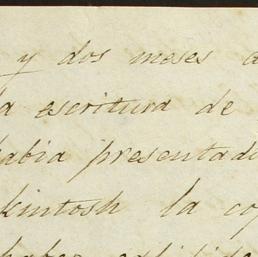 y dos meses a
a escritura de
habia presentado
kintosh la co
haber